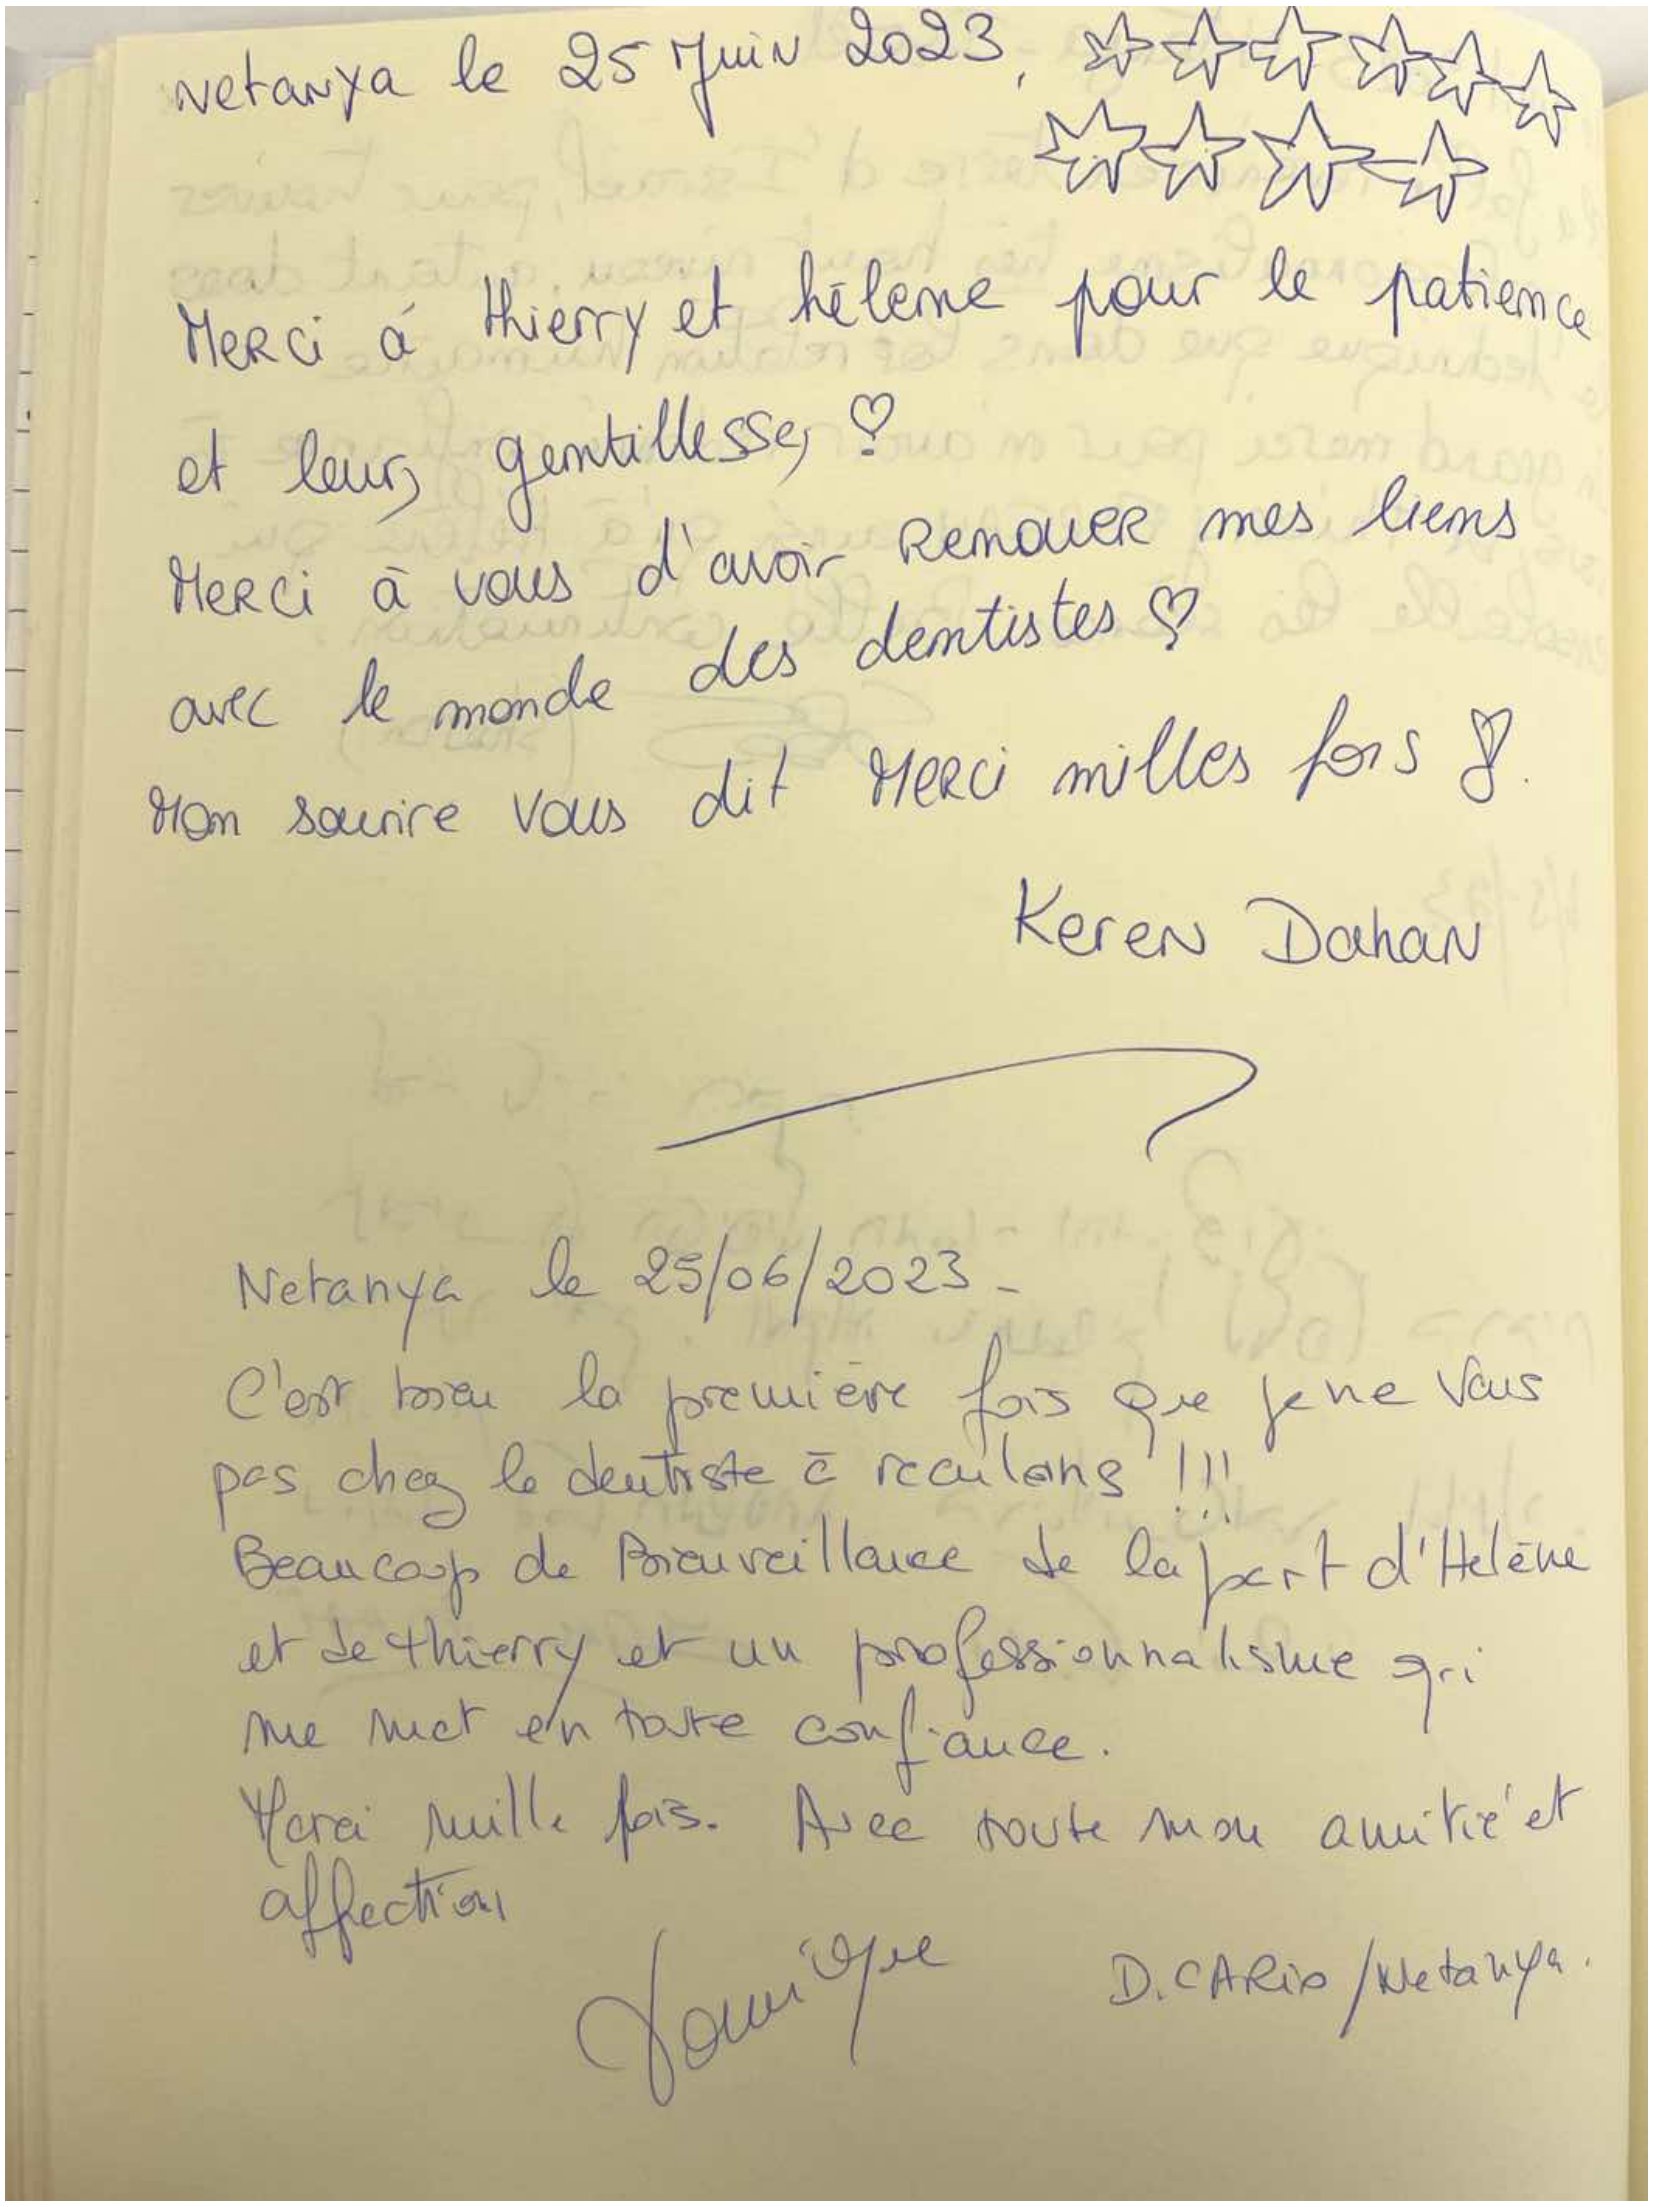 Netanya le 25 Juin 2023,
Merci à thierry et hélene pour le patience
et leurs gentillesses
Merci à vous d'avoir Renouer mes liens
avec le monde des dentistes
Mon sourire vous dit Merci milles fois
Keren Dahan
Netanya le 25/06/2023-
C'est bien la première fois que je ne vais
pas chez le dentiste à reculons !!!
Beaucoup de Bienveillance de la part d'Helène
et de thierry et un professionnalisme qui
me met en toute confiance.
Merci mille fois. Avec toute mon amitié et
affection
D. CARIO / Netanya.